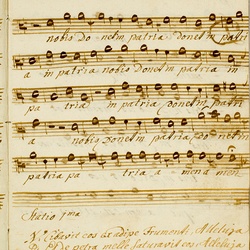 nobis Donet in patria Donet in patri
a in patria nobis Donet in patria in
pa tria in patria Donet in patri
a nobis Donet in patria Do net in
patria pa tria a mena men
Statio 1ma
V. Cibavit eos ex adipe Frumenti, Alleluja
De petra melle saturavit eos Alleluja